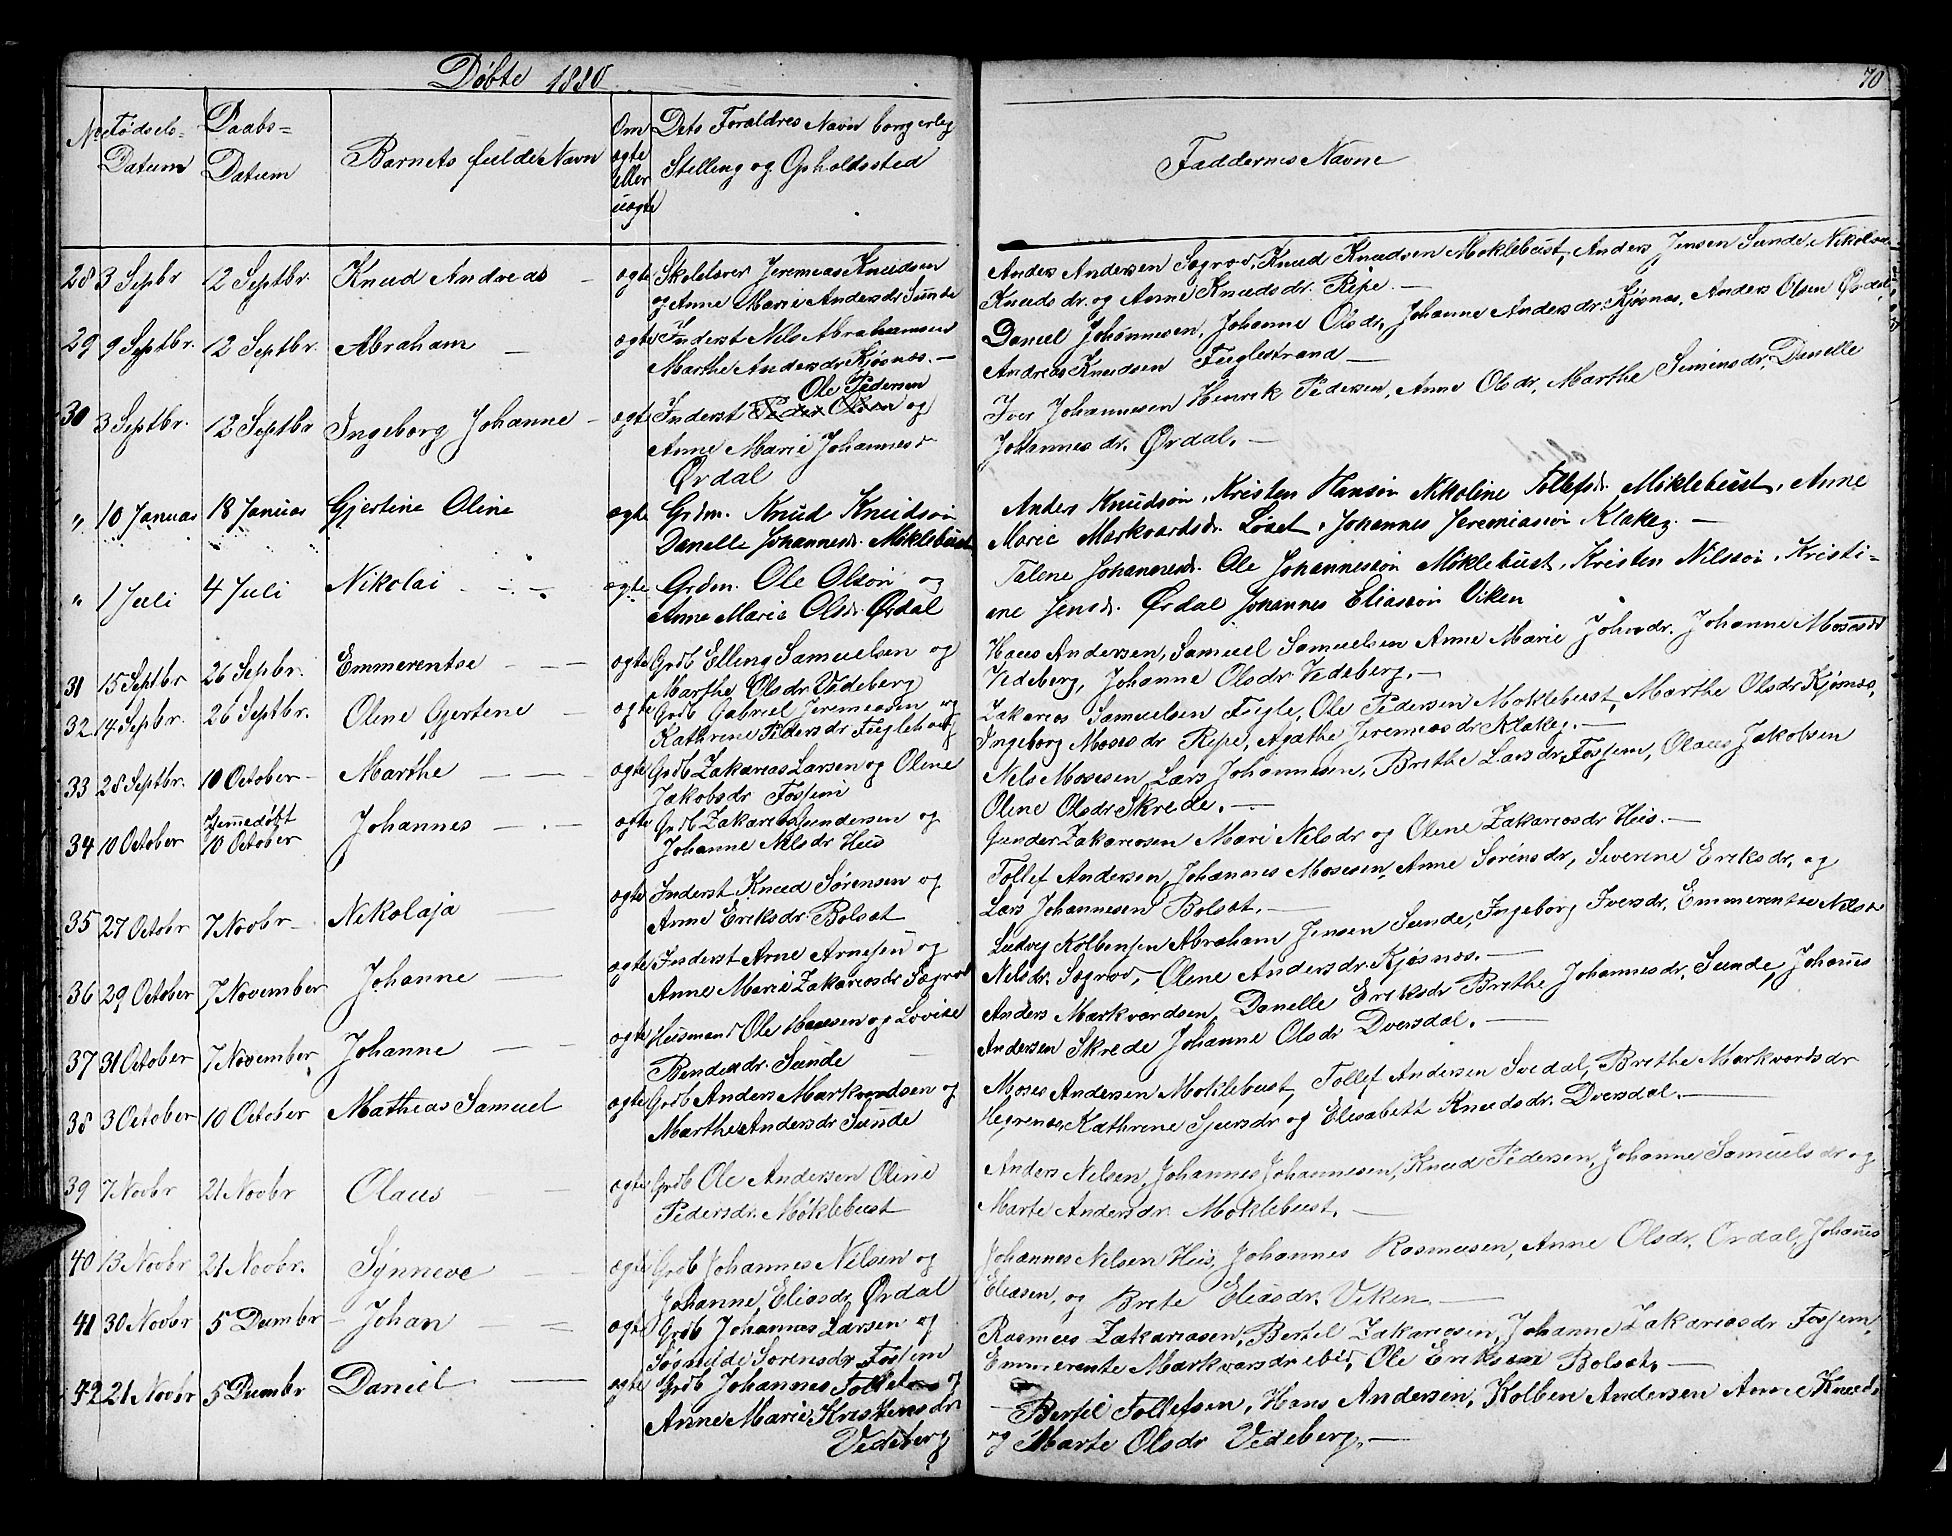 Døbte 1880
70
No
Fødsels=
Datum
Daabs=
Datum
Barnets fulde Navn
Om
ægte
eller
uægte
Dets Foraldres Navn borgerleg
Stelling og Opholdssted
Faddernes Navne
28 3 Sepbr 12 Septbr. Knud Andreas - ægte Skolelærer Jeremias Knudsen
og Anne Marie Andersdr Sunde
Anders Andersen Søgrod, Knud Knudsen Moklebust, Anders Jensen Sunde
Knudsdr. og Anne Knudsdr. Ripe. —
29 9 Septbr. 12 Septbr. Abraham — ægte Inderst Nils Abrahamsen
Marthe Andersdr Kjøsnæs. —
Daniel Johannesen, Johanne Olsdr, Johanne Andersdr. Kjøsnæs, Anders Olsen Ørdal,
Andreas Knudsen Fuglestrand —
30 3 Septbr. 12 Septbr Ingeborg Johanne - ægte Inderst Peder Olsen og
Ole Pedersen
Anne Marie Johannesdr
Ørdal
Iver Johannesen Henrik Pedersen, Anne Olsdr, Marthe Simensdr, Danelle
Johannesdr. Ørdal. —
" 10 Januar 18 Januar Gjertine Oline ægte Grdm. Knud Knudsøn
Danelle Johannesd. Møklebust
Anders Knudsøn, Kristen Hansøn Nikoline Tollefsd. Møklebust, Anne
Marie Markvardsd. Løset, Johannes Jeremiasøn Klakeg. —
" 1 Juli 4 Juli Nikolai ægte Grdm. Ole Olsøn og
Anne Marie Olsdr Ørdal
Talene Johannesd. Ole Johannessøn Møklebust, Kristen Nilssøn, Kristi-
ane Jensd. Ørdal Johannes Eliassøn Viken
31 15 Septbr 26 Sepbr. Emmerentse — — ægte Grdb Elling Samuelsen og
Marthe Olsdr Vedeberg
Hans Andersen, Samuel Samuelsen Anne Marie Johndr. Johanne Mosesdr
Vedeberg, Johanne Olsdr Vedeberg. —
32 14 Sepbr. 26 Septbr. Oline Gjertene — ægte Grdb Gabriel Jeremiasen og
Kathrine Pedersdr
Zakarias Samuelsen Fugle, Ole Pedersen Moklebust, Marthe Olsdr Kjøsnæs,
Ingeborg Mosesdr Ripe, Agathe Jeremiasdr Klakeg. —
33 28 Septbr. 10 October - Marthe — — ægte Grdb Zakarias Larsen og Olene
Jakobsdr Fossem
Nels Mosesen Lars Johannesen, Brethe Larsdr, Fossem, Olaus Jakobsen
Olene Olsdr Skrede. —
34 10 October Hjemmedøbt
10 October Johannes — . — ægte Grdb Zakarias Gundersen og
Johanne Nilsdr Hus
Gunder Zakariasen Mari Nelsdr og Olene Zakariasdr Hus. —
35 27 Octobr 7 Novbr - Nekolaja — ægte Inderst Knud Sørensen og
Anne Eriksdr Bolsæt
Tollef Andersen, Johannes Mosesen, Anne Sørensdr, Severine Eriksdr. og
Lars Johannesen Bolsæt. —
36 29 October 7 November Johanne — ægte Inderst Arne Arnesen og
Anne Marie Zakariasdr Søgrod
Ludvig Kolbensen Abraham Jensen Sunde, Ingeborg Iversdr. Emmerentse
Nelsdr. Søgrod, Olene Andersdr Kjøsnæs. —
37 31 October 7 November Johanne — — ægte Husmand Ole Hansen og Lovise
Bendexdr. Sunde
Anders Markvardsen, Danelle Eriksdr Brethe Johannesdr. Sunde, Johanes
Andersen Skrede Johanne Olsdr Dversdal. —
38 3 October 10 October Mathias Samuel ægte Grdb Anders Markvardsen og
Marthe Andersdr Sunde
Moses Andersen Moklebust, Tollef Andersen Svedal, Brethe Markvardsdr
Kathrene Sjursdr og Elisabett Knudsdr. Dversdal. —
39 7 Novbr 21 Novbr Olaus — ægte Grdb Ole Andersen Oline
Pedersdr. Møklebust
Anders Nelsen, Johannes Johannesen, Knud Pedersen, Johanne Samuelsdr og
Marte Andersdr Moklebust. —
40 13 Novbr 21 Novbr. Synneve — ægte Grdb Johannes Nelsen og
Johanne Eliasdr, Ørdal
Johannes Nelsen Hus, Johannes Rasmusen, Anne Olsdr. Ordal, Johanes
Eliasen, og Brete Eliasdr. Viken. —
41 30 Novbr 5 Dcembr - Johan — — ægte Grdb Johannes Larsen og
Sørensdr Fossem
Rasmus Zakariasen, Bertel Zakariasen, Johanne Zakariasdr Fossem,
Emmerente Markvarsdr ebid, Ole Eriksen Bolsæt. —
42 21 Novbr 5 Dcembr Daniel — ægte Grdb Johannes Tollefsen og
Anne Marie Kristensdr
Vedeberg
— Bertel Tollefsen, Hans Andersen, Kolben Andersen Anne Knuds
og Marte Olsdr Vedeberg. —